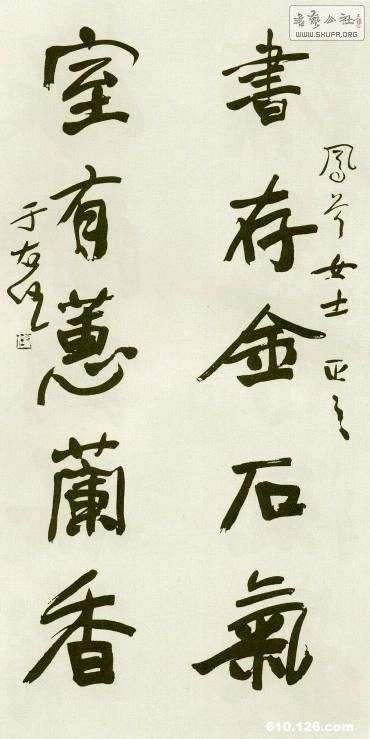 書存金石氣
鳳芩女士正之
室有蕙蘭香
于右任
書藝公社
WWW.SHUFA.ORG
610.126.com